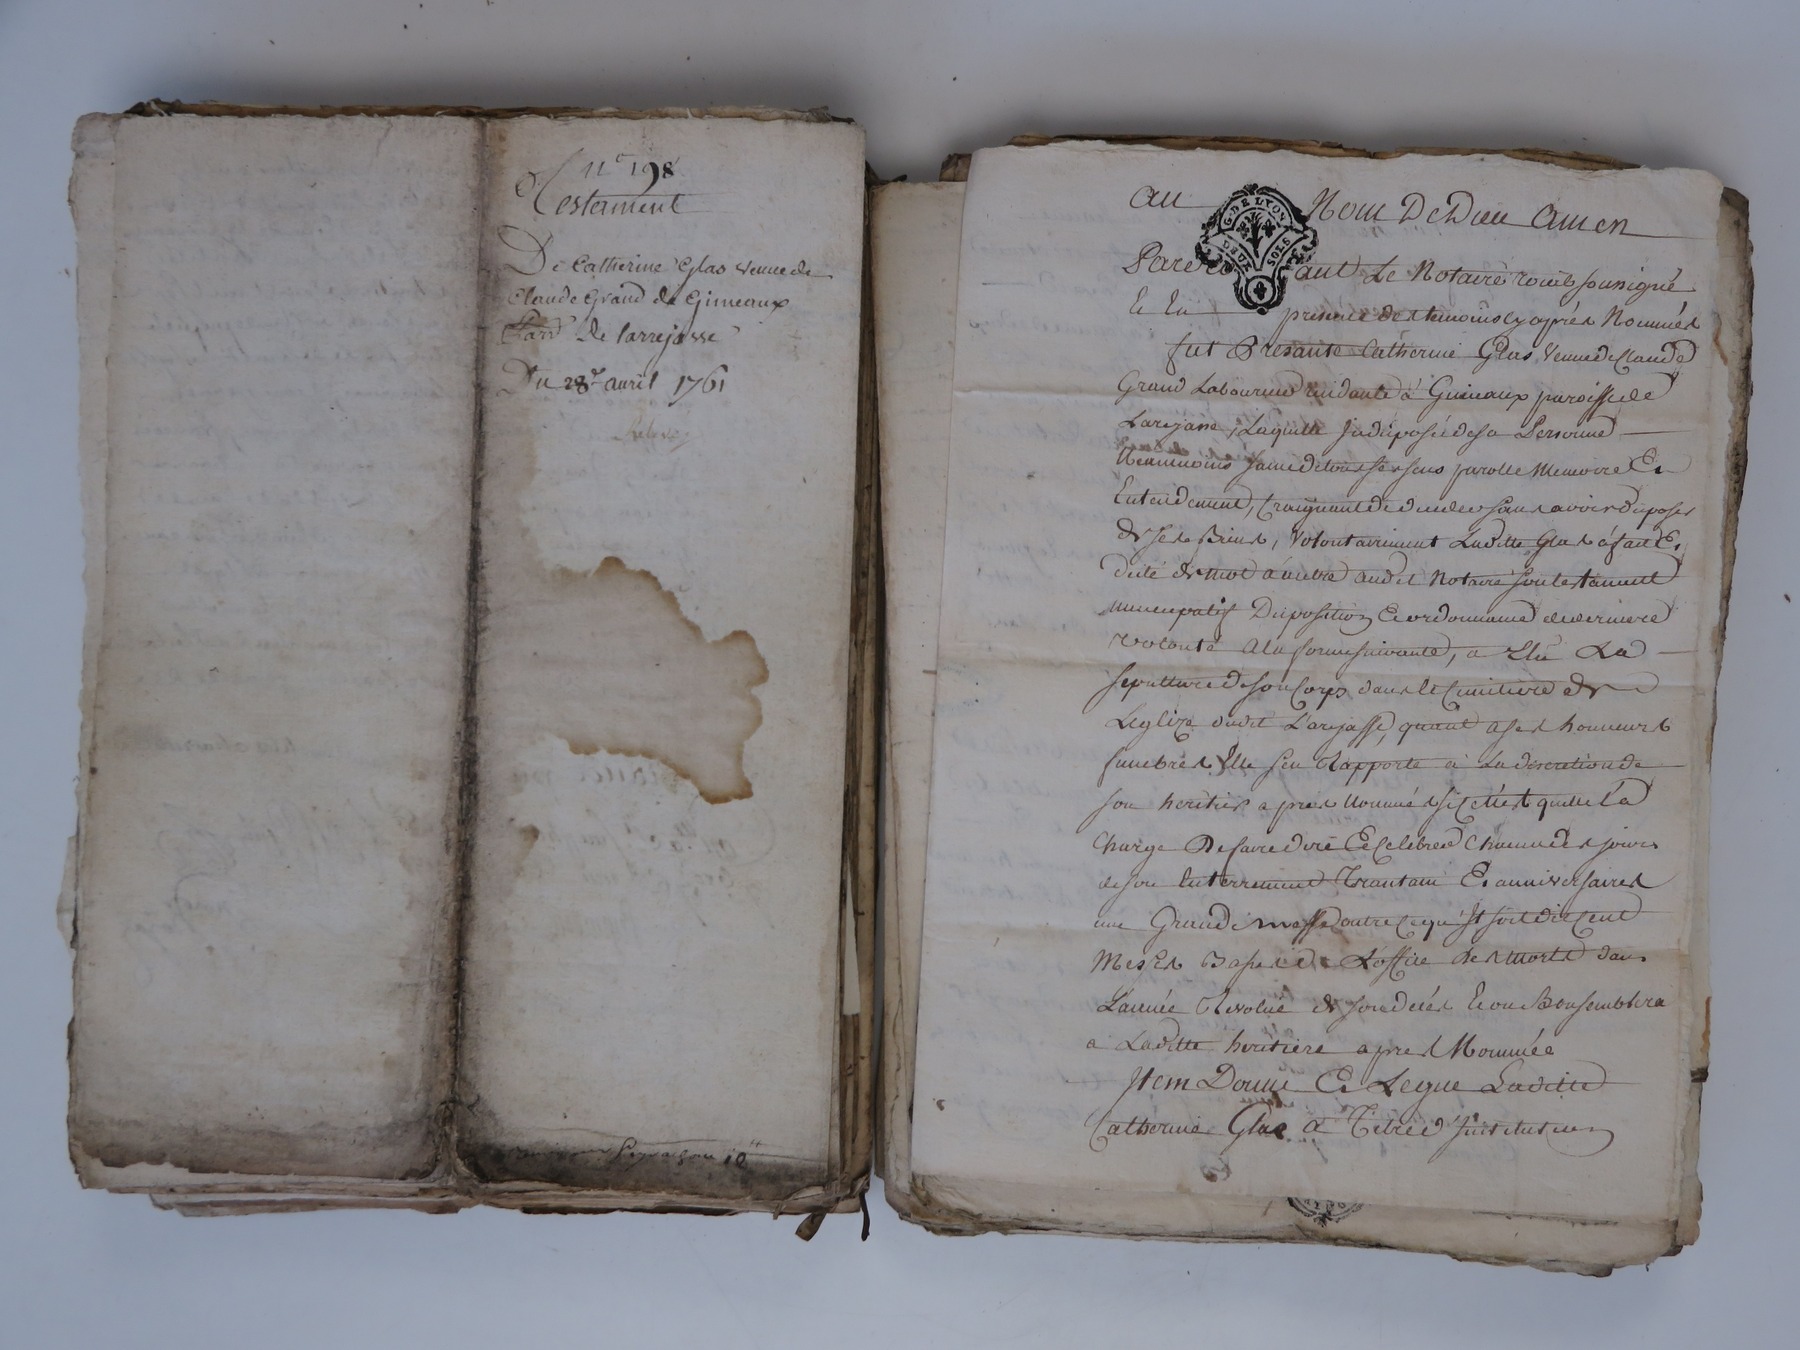 n.º 198
Testament
De Catherine Glas veuve de
Claude Grand de Gimeaux
Parr.e de larrejasse
Du 28.e avril 1761
au Nom De Dieu Amen
G. DE LYON
DEUX SOLS
Pardevant Le Notaire royal sousigné
Et En presence des temoins cy aprés Nommés
fut Presante Catherine Glas, Veuve de Claude
Grand Laboureur residante à Gimeaux paroisse de
Larejasse, Laquelle Indisposée de sa Personne
Neanmoins saine de tous ses sens parolle Memoire Et
Entendement, Craignant de deceder sans avoir disposer
de ses Biens, Volontairement Laditte Glas à fait Et
dicté de mot à autre audit Notaire son testament
nuncupatif Disposition Et ordonnance de derniere
volonté a la forme suivante, a Elu La
sepulture de son Corps dans le Cimitiere de
Leglize dudit Larejasse, quant a ses honneurs
funebres Elle s'en Rapporte à La discretion de
son heritier apres Nommés si Cest quelle la
Charge De faire dire Et Celebrer Chacun des jours
de son Enterrement Trantain Et anniversaire
une Grande messe outre Ce qu'Il soit dit Cent
Messes Basses de L'office des morts dans
L'année Revolue de son decés Et ou Bon semblera
a Laditte heritiere apres Nommée
Item Donne Et Legue Laditte
Catherine Glas à Titre d'Institution